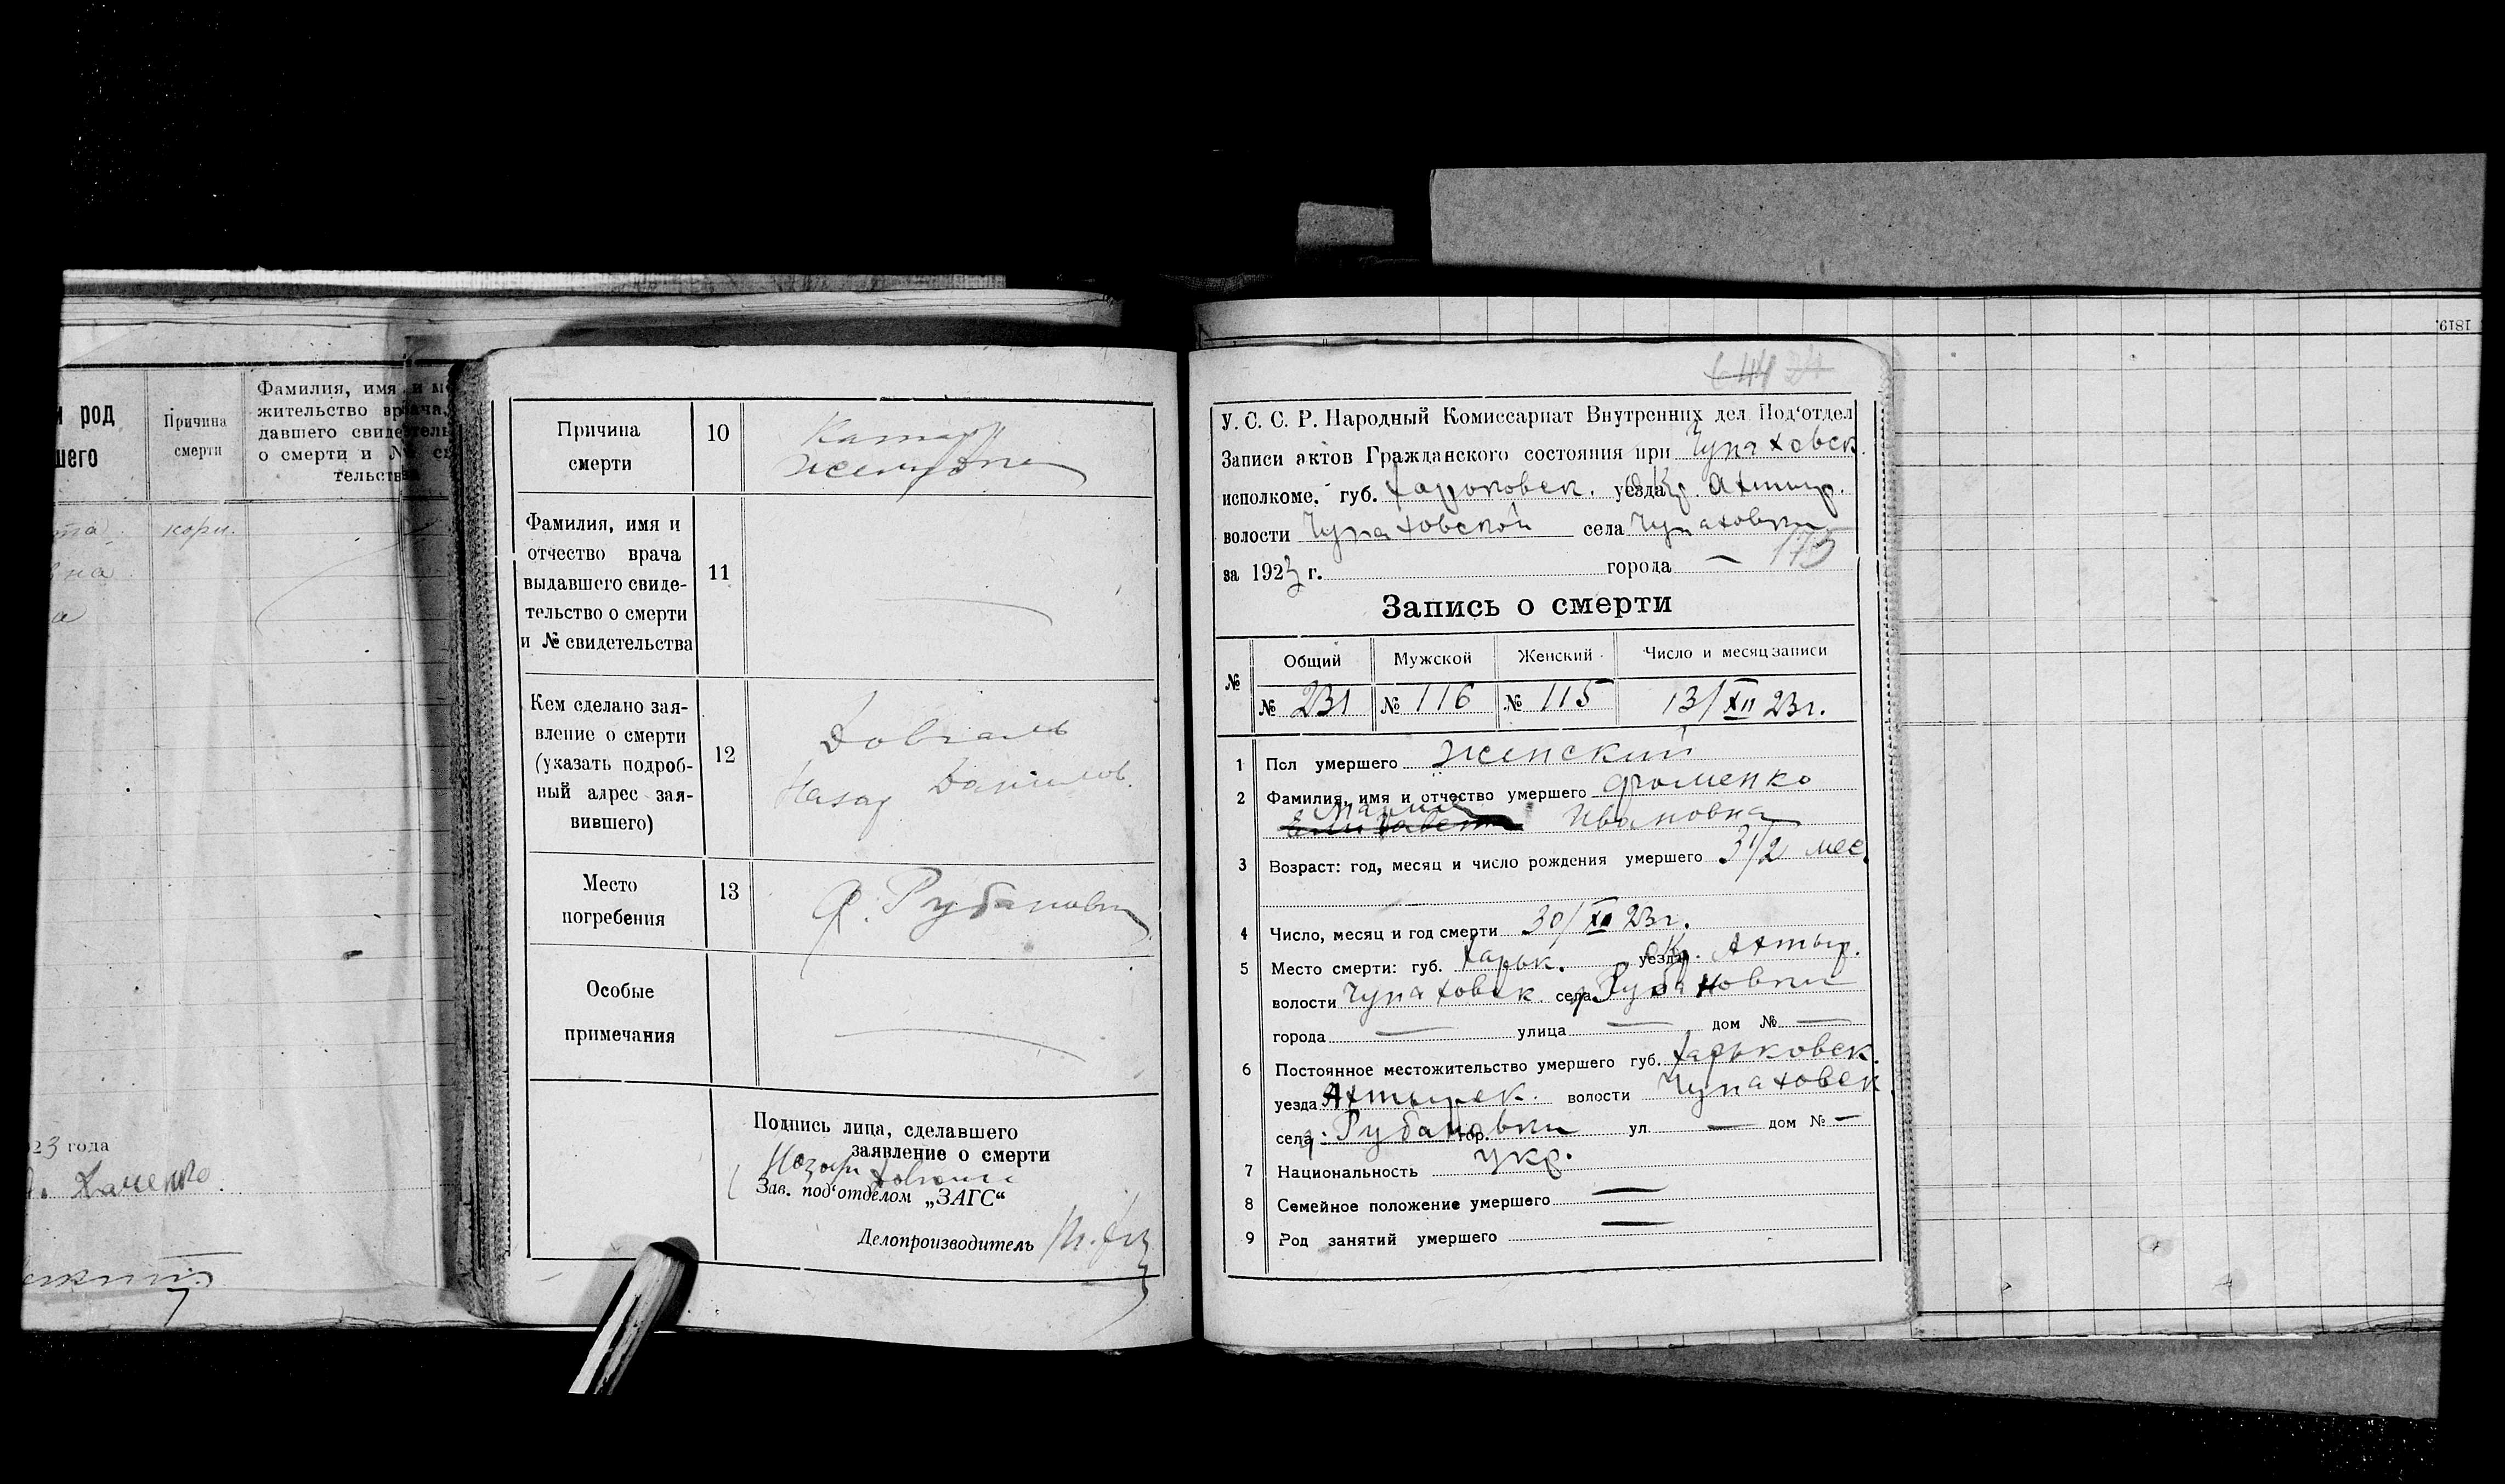 и род
шего
Причина
смерти
Фамилия, имя и ме
жительство врача,
давшего свидетель
о смерти и № св
тельства
та
кори.
на
а
23 года
Даченко
Причина
смерти
10
Катар
желудка
Фамилия, имя и
отчество врача
выдавшего свиде-
тельство о смерти
и № свидетельства
11
Кем сделано зая-
вление о смерти
(указать подроб-
ный адрес зая-
вившего)
12
Довгаль
Назар Данилов.
Место
погребения
13
х. Рубановка
Особые
примечания
Подпись лица, сделавшего
заявление о смерти
Назар Довгаль
Зав. под'отделом „ЗАГС“
Делопроизводитель
644 24
У. С. С. Р. Народный Комиссариат Внутренних дел Под'отдел
Записи актов Гражданского состояния при Чупаховск.
исполкоме. губ. Харьковск. уезда Окр. Ахтыр.
волости Чупаховской села Чупаховки
за 1923 г. города — 175
Запись о смерти
№
Общий Мужской Женский Число и месяц записи
№ 231 № 116 № 115 13/XII 23г.
1 Пол умершего Женский
2 Фамилия, имя и отчество умершего Фоменко
Мария
Елизавета Ивановна
3 Возраст: год, месяц и число рождения умершего 3 1/2 мес.
4 Число, месяц и год смерти 30/XI 23г.
5 Место смерти: губ. Харьк. уезда Окр. Ахтыр.
волости Чупаховск. села х. Рубановки
города — улица — дом № —
6 Постоянное местожительство умершего губ. Харьковск.
уезда Ахтырск. волости Чупаховск.
села х. Рубановки гор. ул — дом № —
7 Национальность укр.
8 Семейное положение умершего —
9 Род занятий умершего —
1819.